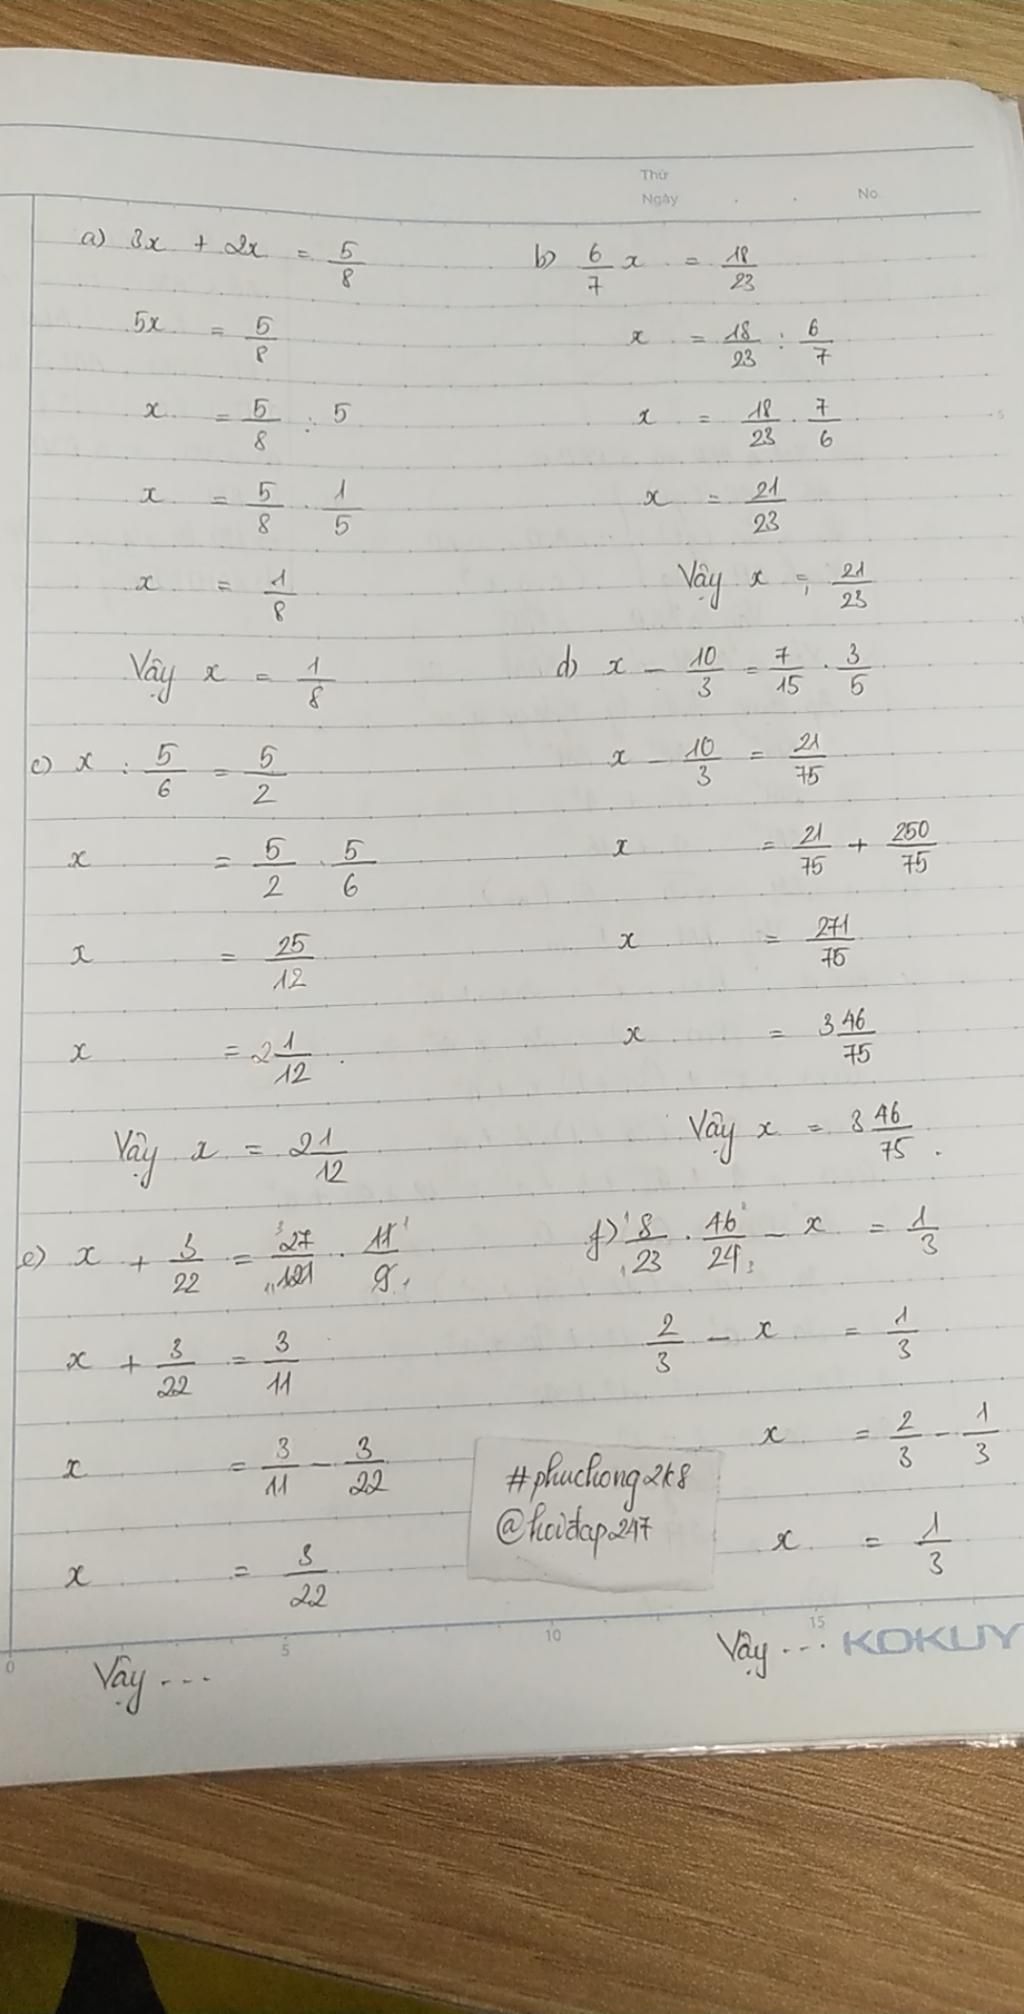 Thứ
Ngày . . No.
a) 3x + 2x = 5/8
5x = 5/8
x = 5/8 : 5
x = 5/8 . 1/5
x = 1/8
Vậy x = 1/8
b) 6/7 x = 18/23
x = 18/23 : 6/7
x = 18/23 . 7/6
x = 21/23
Vậy x = 21/23
c) x : 5/6 = 5/2
x = 5/2 . 5/6
x = 25/12
x = 2 1/12
Vậy x = 2 1/12
d) x - 10/3 = 7/15 . 3/5
x - 10/3 = 21/75
x = 21/75 + 250/75
x = 271/75
x = 3 46/75
Vậy x = 3 46/75 .
e) x + 3/22 = 27/121 . 11/9
x + 3/22 = 3/11
x = 3/11 - 3/22
x = 3/22
Vậy ...
f) 8/23 . 46/24 - x = 1/3
2/3 - x = 1/3
x = 2/3 - 1/3
x = 1/3
Vậy ...
#phuchong2k8
@hoidap247
0 5 10 15
KOKUY